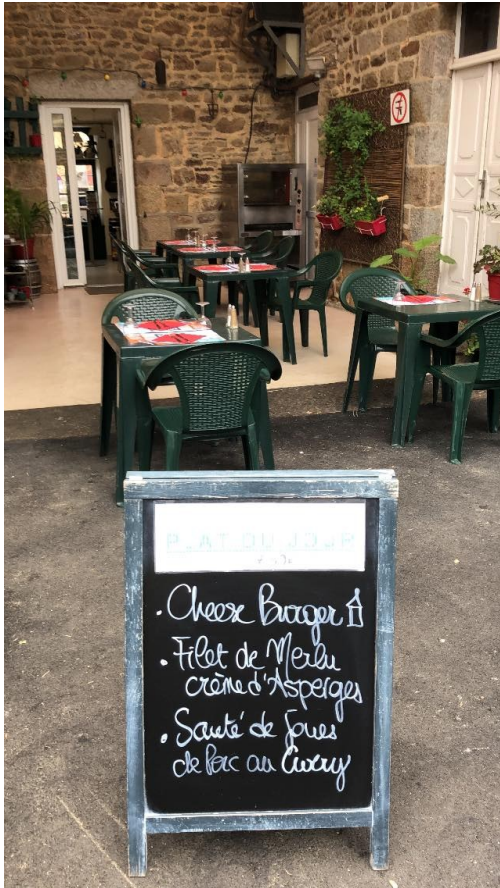 PLAT DU JOUR
• Cheese Burger
• Filet de Merlu
crème d'Asperges
• Sauté de Joues
de Porc au Curry